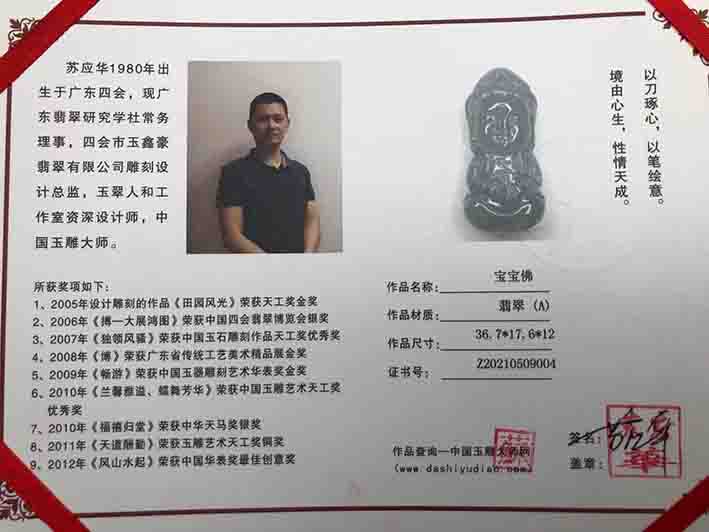 苏应华1980年出
生于广东四会，现广
东翡翠研究学社常务
理事，四会市玉鑫豪
翡翠有限公司雕刻设
计总监，玉翠人和工
作室资深设计师，中
国玉雕大师。
以刀琢心，以笔绘意。
境由心生，性情天成。
所获奖项如下：
1、2005年设计雕刻的作品《田园风光》荣获天工奖金奖
2、2006年《搏一大展鸿图》荣获中国四会翡翠博览会银奖
3、2007年《独领风骚》荣获中国玉石雕刻作品天工奖优秀奖
4、2008年《博》荣获广东省传统工艺美术精品展金奖
5、2009年《畅游》荣获中国玉器雕刻艺术华表奖金奖
6、2010年《兰馨雅溢、蝶舞芳华》荣获中国玉雕艺术天工奖
优秀奖
7、2010年《福禧归堂》荣获中华天马奖银奖
8、2011年《天道酬勤》荣获玉雕艺术天工奖铜奖
9、2012年《风山水起》荣获中国华表奖最佳创意奖
作品名称：宝宝佛
作品材质：翡翠（A）
作品尺寸：36.7*17.6*12
证书号：Z20210509004
作品查询—中国玉雕大师网
(www.dashiyudiao.com)
签名：
盖章：